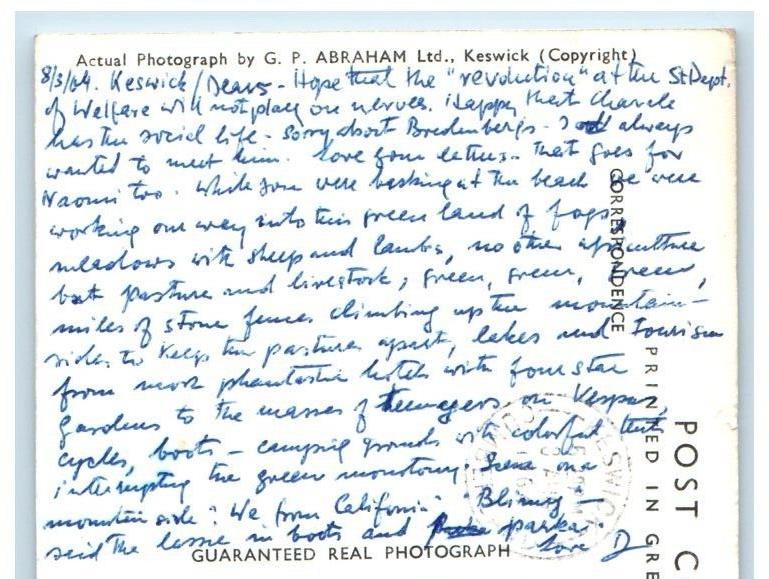 Actual Photograph by G. P. ABRAHAM Ltd., Keswick (Copyright)
8/3/64. Keswick/Dears - Hope that the "revolution" at the St Dept.
of Welfare will not play on nerves. Happy that Charle
has the social life - Sorry about Bredenbergs - I always
wanted to meet him. Love your letters - That goes for
Naomi too. While you were basking at the beach we were
working our way into this green land of fogs,
meadows with sheep and lambs, no other agriculture
but pasture and livestock; green, green, green,
miles of stone fences climbing up the mountain-
sides to keep the pastures apart, lakes and tourism
from most phantastic hotels with four star
gardens to the masses of teenagers on Vespas,
cycles, boots - camping grounds with colorful tents
interrupting the green monotony. Scene on a
mountain side: "We from California" "Blimey -
said the lassie in boots and parka. Love D
GUARANTEED REAL PHOTOGRAPH
CORRESPONDENCE
PRINTED IN GRE
POST C
KESWICK